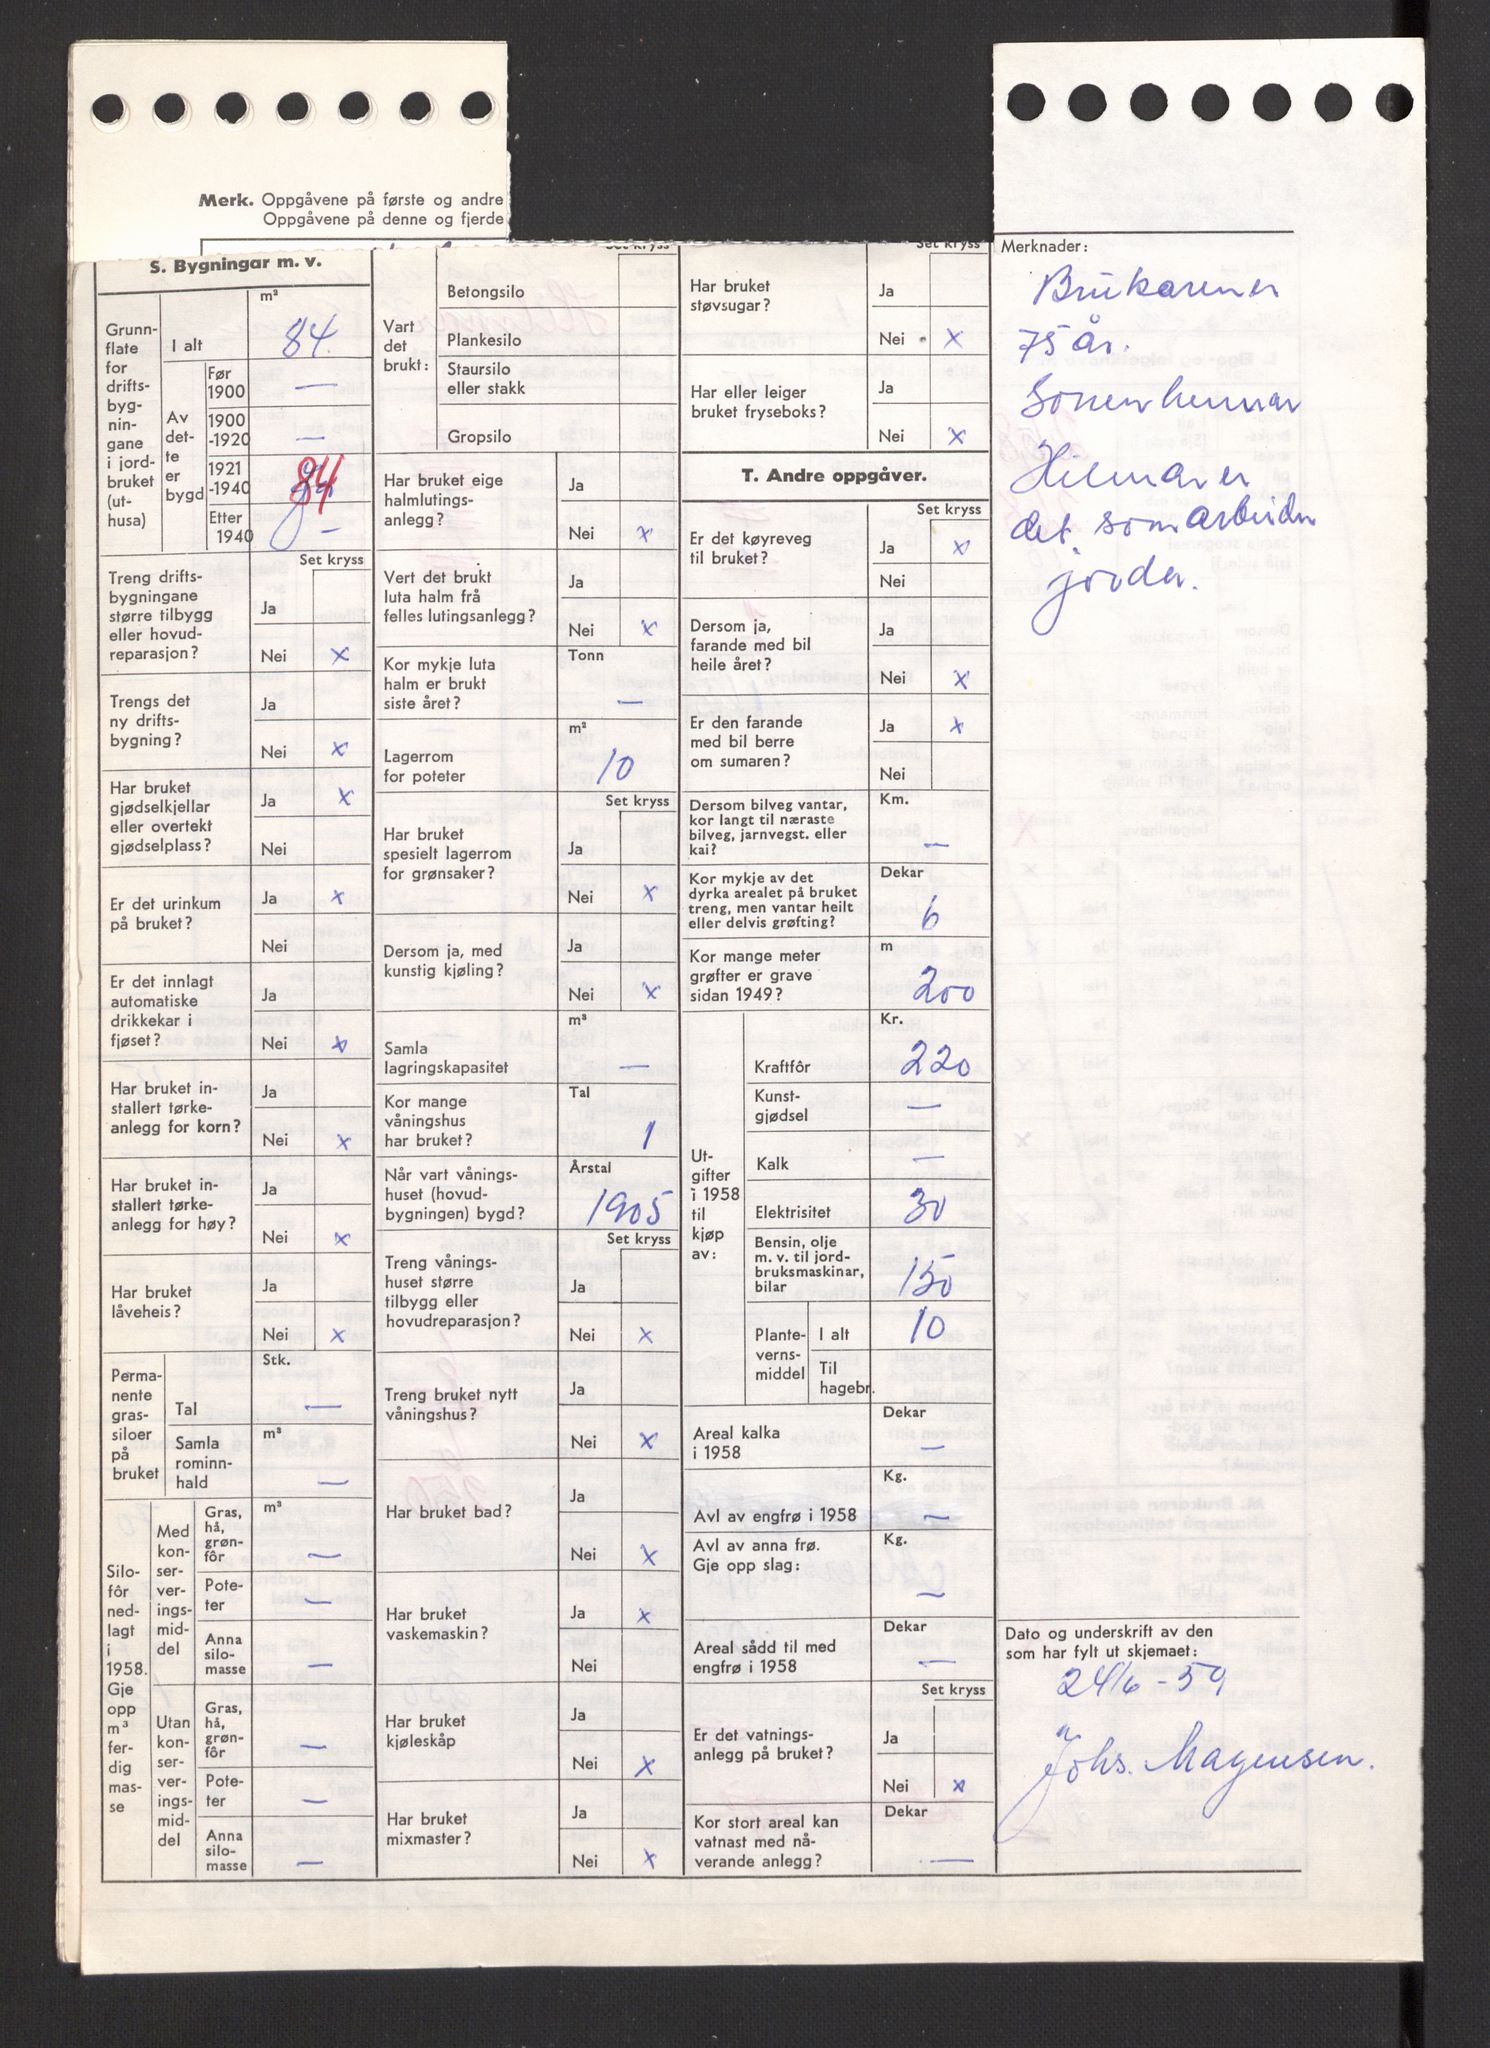 Merk. Oppgåvene på første og andre
Oppgåvene på denne og fjerde
S. Bygningar m. v.
m²
Grunn-
flate
for
drifts-
byg-
nin-
gane
i jord-
bruket
(ut-
husa)
I alt
84.
Av
det-
te
er
bygd
Før
1900
—
1900
-1920
—
1921
-1940
84
Etter
1940
—
Set kryss
Treng drifts-
bygningane
større tilbygg
eller hovud-
reparasjon?
Ja
Nei x
Trengs det
ny drifts-
bygning?
Ja
Nei x
Har bruket
gjødselkjellar
eller overtekt
gjødselplass?
Ja x
Nei
Er det urinkum
på bruket?
Ja x
Nei
Er det innlagt
automatiske
drikkekar i
fjøset?
Ja
Nei x
Har bruket in-
stallert tørke-
anlegg for korn?
Ja
Nei x
Har bruket in-
stallert tørke-
anlegg for høy?
Ja
Nei x
Har bruket
låveheis?
Ja
Nei x
Perma-
nente
gras-
siloer
på
bruket
Stk.
Tal —
Samla
rominn-
hald
m³
—
Silo-
fôr
ned-
lagt
i
1958.
Gje
opp
m³
fer-
dig
mas-
se
Med
kon-
ser-
ver-
ings-
mid-
del
m³
Gras,
hå,
grøn-
fôr —
Pote-
ter —
Anna
silo-
masse —
Utan
kon-
ser-
ver-
ings-
mid-
del
Gras,
hå,
grøn-
fôr —
Pote-
ter —
Anna
silo-
masse —
Set kryss
Vart
det
brukt:
Betongsilo
Plankesilo
Staursilo
eller stakk
Gropsilo
Har bruket eige
halmlutings-
anlegg?
Ja
Nei x
Vert det brukt
luta halm frå
felles lutingsanlegg?
Ja
Nei x
Kor mykje luta
halm er brukt
siste året?
Tonn
—
Lagerrom
for poteter
m²
10
Set kryss
Har bruket
spesielt lagerrom
for grønsaker?
Ja
Nei x
Dersom ja, med
kunstig kjøling?
Ja
Nei x
Samla
lagringskapasitet
m³
—
Kor mange
våningshus
har bruket?
Tal
1
Når vart vånings-
huset (hovud-
bygningen) bygd?
Årstal
1905
Set kryss
Treng vånings-
huset større
tilbygg eller
hovudreparasjon?
Ja
Nei x
Treng bruket nytt
våningshus?
Ja
Nei x
Har bruket bad?
Ja
Nei x
Har bruket
vaskemaskin?
Ja x
Nei
Har bruket
kjøleskåp
Ja
Nei x
Har bruket
mixmaster?
Ja
Nei x
Set kryss
Har bruket
støvsugar?
Ja
Nei x
Har eller leiger
bruket fryseboks?
Ja
Nei x
T. Andre oppgåver.
Set kryss
Er det køyreveg
til bruket?
Ja x
Nei
Dersom ja,
farande med bil
heile året?
Ja
Nei x
Er den farande
med bil berre
om sumaren?
Ja x
Nei
Dersom bilveg vantar,
kor langt til næraste
bilveg, jarnvegst. eller
kai?
Km.
—
Kor mykje av det
dyrka arealet på bruket
treng, men vantar heilt
eller delvis grøfting?
Dekar
6
Kor mange meter
grøfter er grave
sidan 1949?
m
200
Ut-
gifter
i 1958
til
kjøp
av:
Kr.
Kraftfôr 220
Kunst-
gjødsel —
Kalk —
Elektrisitet 30
Bensin, olje
m. v. til jord-
bruksmaskinar,
bilar 150
Plante-
verns-
middel
I alt 10
Til
hagebr.
Areal kalka
i 1958
Dekar
—
Avl av engfrø i 1958
Kg.
—
Avl av anna frø.
Gje opp slag:
Kg.
—
Areal sådd til med
engfrø i 1958
Dekar
—
Set kryss
Er det vatnings-
anlegg på bruket?
Ja
Nei x
Kor stort areal kan
vatnast med nå-
verande anlegg?
Dekar
—
Merknader:
Brukaren er
75 år.
Sonen hennar
Hilmar er
det som arbeider
jorda.
Dato og underskrift av den
som har fylt ut skjemaet:
24/6 - 59
Johs. Magensen.